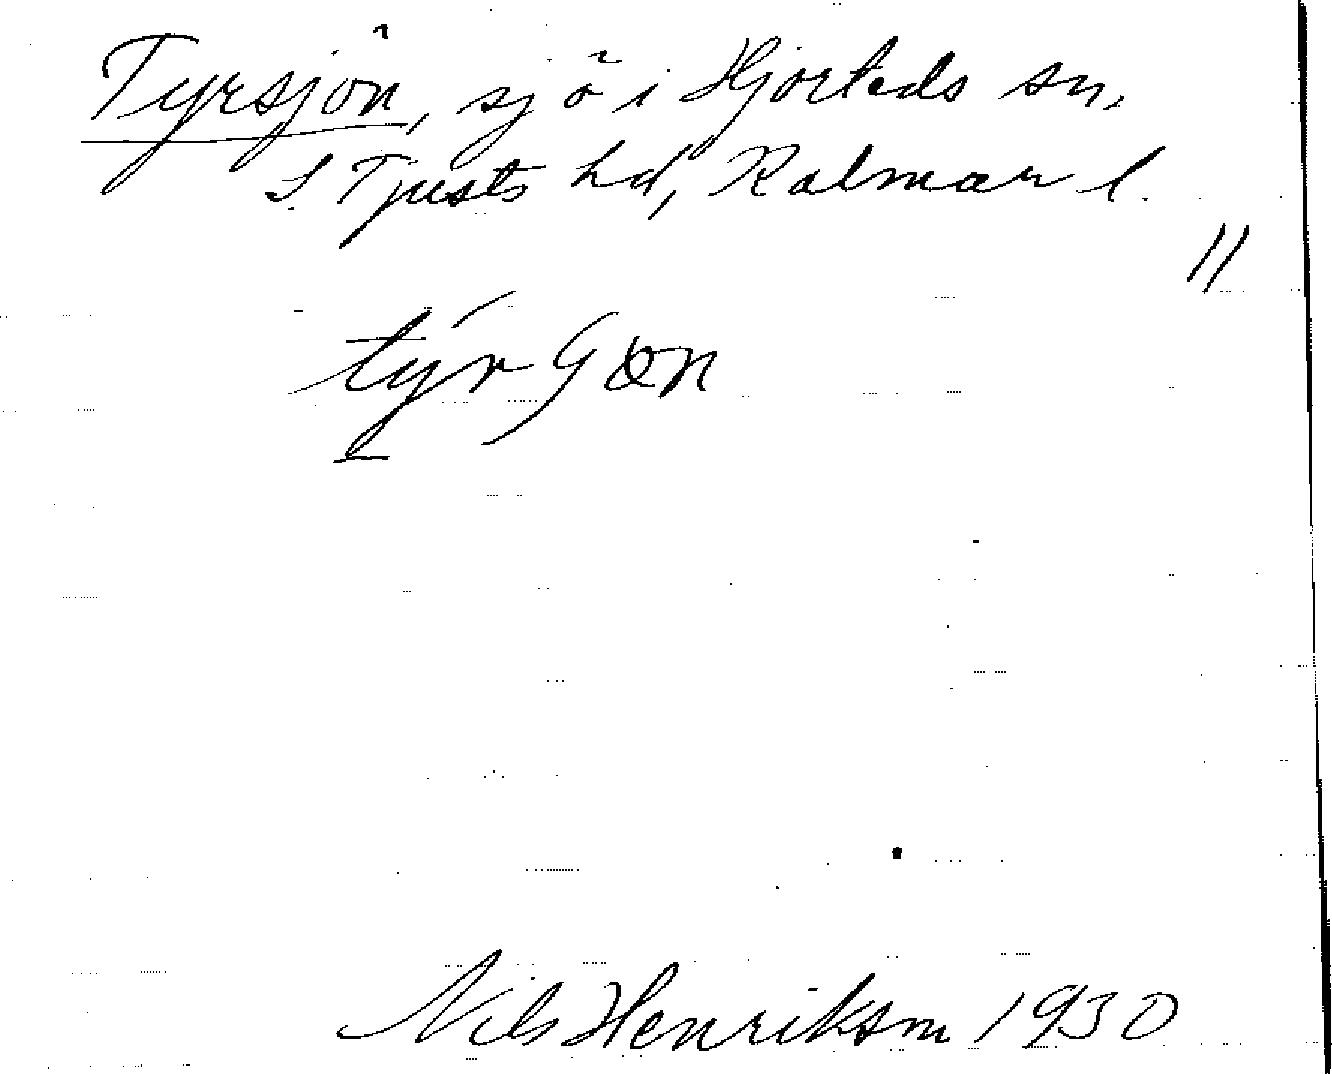 Tyrsjön, sjö i Hjorteds sn,
S. Tjusts hd, Kalmar l.
//
Nils Henrikson 1930